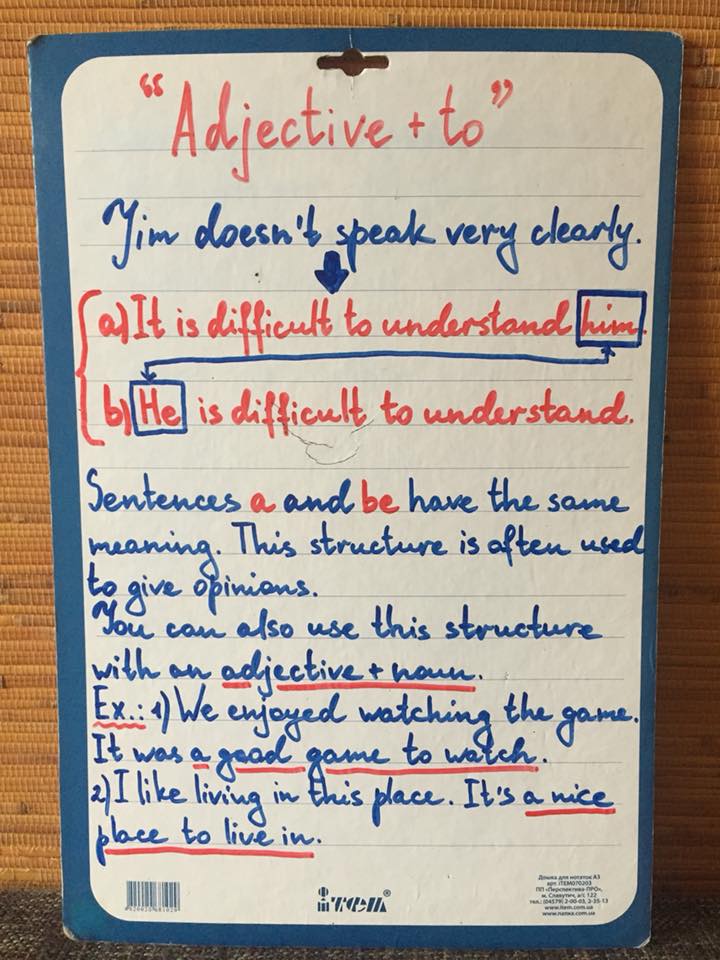 “Adjective + to”
Jim doesn't speak very clearly.
a) It is difficult to understand him.
b) He is difficult to understand.
Sentences a and be have the same
meaning. This structure is often used
to give opinions.
You can also use this structure
with an adjective + noun.
Ex.: 1) We enjoyed watching the game.
It was a good game to watch.
2) I like living in this place. It's a nice
place to live in.
iтем®
Дошка для нотаток А3
арт. iTEM070203
ПП «Перспектива-ПРО»,
м. Славутич, а/с 122
тел.: (04579) 2-00-03, 2-35-13
www.item.com.ua
www.папка.com.ua